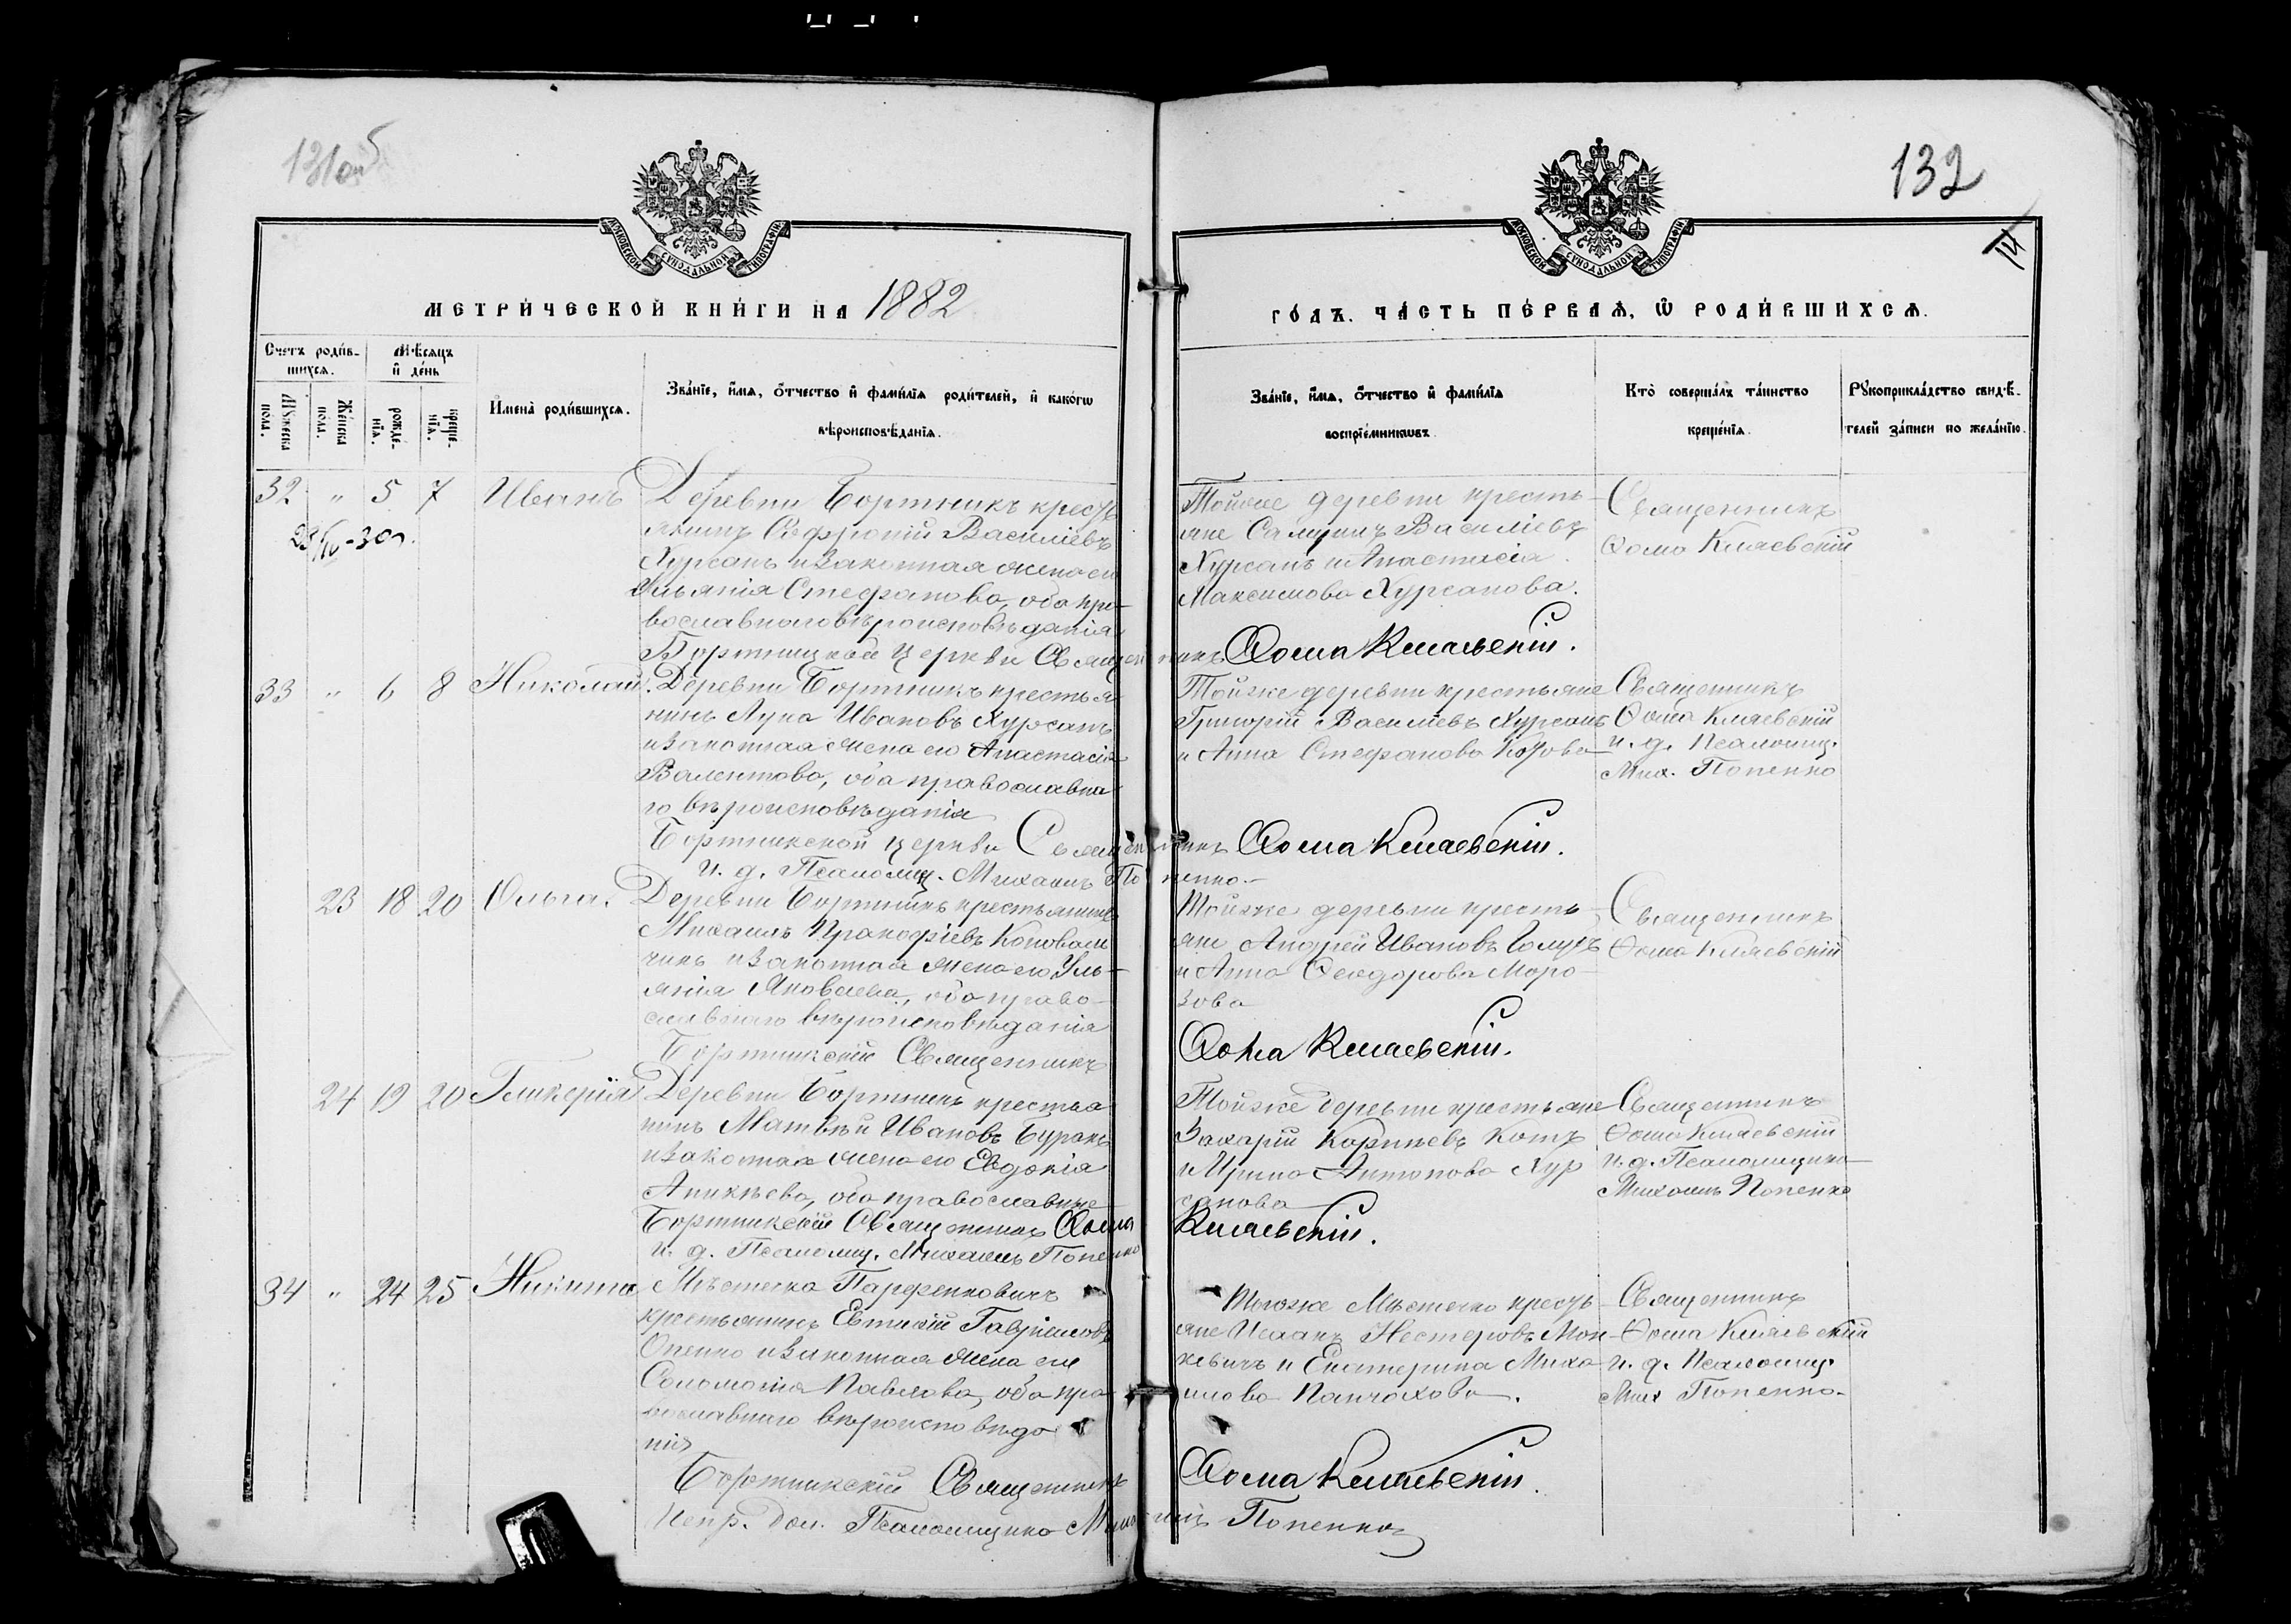 131об
132
МОСКОВСКОЙ СѴНОДАЛЬНОЙ ТИПОГРАФІИ
МОСКОВСКОЙ СѴНОДАЛЬНОЙ ТИПОГРАФІИ
МЕТРИ́ЧЕСКОЙ КНИ́ГИ НА 1882
ГО́ДЪ. ЧА́СТЬ ПЕ́РВАѦ, Ѿ РОДИ́ВШИХСѦ.
Счетъ роди́в-
шихсѧ.
Мѣ́сѧцъ
и҆ де́нь
Мꙋ́жеска
по́ла.
Же́нска
по́ла.
рожде́-
нїѧ.
креще́-
нїѧ.
И҆мена̀ роди́вшихсѧ.
Зва́нїе, и҆́мѧ, ѻ҆́тчество и҆ фами́лїѧ роди́телей, и҆ како́гѡ
вѣроисповѣ́данїѧ.
Зва́нїе, и҆́мѧ, ѻ҆́тчество и҆ фами́лїѧ
воспрїе́мникѡвъ.
Кто̀ соверша́лъ та́инство
креще́нїѧ.
Рꙋкоприкла́дство свидѣ́-
телей за́писи по жела́нїю.
32 " 5 7 Иванъ
Деревни Бортникъ кресть
янинъ Софроній Василіевъ
Хурсанъ и законная жена его
Ульянія Стефанова, оба пра-
вославнаго вѣроисповѣданія
Бортницкой церкви Священникъ Ѳома Клаевскій.
Тойже деревни кресть-
яне Василіевъ
Хурсанъ и Анастасія
Максимова Хурсанова.
Священникъ
Ѳома Клаевскій
33 " 6 8 Николай.
Деревни Бортникъ крестья
нинъ Лука Ивановъ Хурсанъ
и законная жена его Анастасія
Валентова, оба православна
го вѣроисповѣданія
Бортникской церкви Священникъ Ѳома Клаевскій.
И. д. Псаломщ. Михаилъ Попенко.
Тойже деревни крестьяне
Григорій Василіевъ Хурсанъ
и Анна Стефанова
Священникъ
Ѳома Клаевскій
и. д. Псаломщ.
Мих. Попенко
23 18 20 Ольга.
Деревни Бортникъ крестьянинъ
Михаилъ Прокофіевъ Коноваль
чикъ и законная жена его Уль-
янія Яковлева, оба право-
славнаго вѣроисповѣданія
Бортникскій Священникъ Ѳома Клаевскій.
Тойже деревни кресть-
яне Андрей Ивановъ
и Анна Ѳеодорова Моро-
зова
Священникъ
Ѳома Клаевскій
24 19 20 Гликерія
Деревни Бортникъ крестья
нинъ Матвѣй Ивановъ Буракъ
и законная жена его Евдокія
Аникѣева, оба православные
Бортникскій Священникъ Ѳома Клаевскій.
И. д. Псаломщ. Михаилъ Попенко
Тойже деревни крестьяне
Захарій Корнѣевъ Котъ
и Ирина Антонова Хур
санова
Священникъ
Ѳома Клаевскій
И. д. Псаломщика
Михаилъ Попенко
34 " 24 25 Никита
Мѣстечка Парфеновичъ
крестьянинъ Евтихій Гавріиловъ
Опенко и законная жена его
Соломонія Павлова, оба пра-
вославнаго вѣроисповѣда
нія
Бортникскій Священникъ Ѳома Клаевскій.
Испр. дол. Псаломщика Михаилъ Попенко
Тогоже Мѣстечка кресть-
яне Исаакъ Нестеровъ Мон-
кевичъ и Екатерина Миха
илова
Священникъ
Ѳома Клаевскій
и. д. Псаломщ.
Мих Попенко.